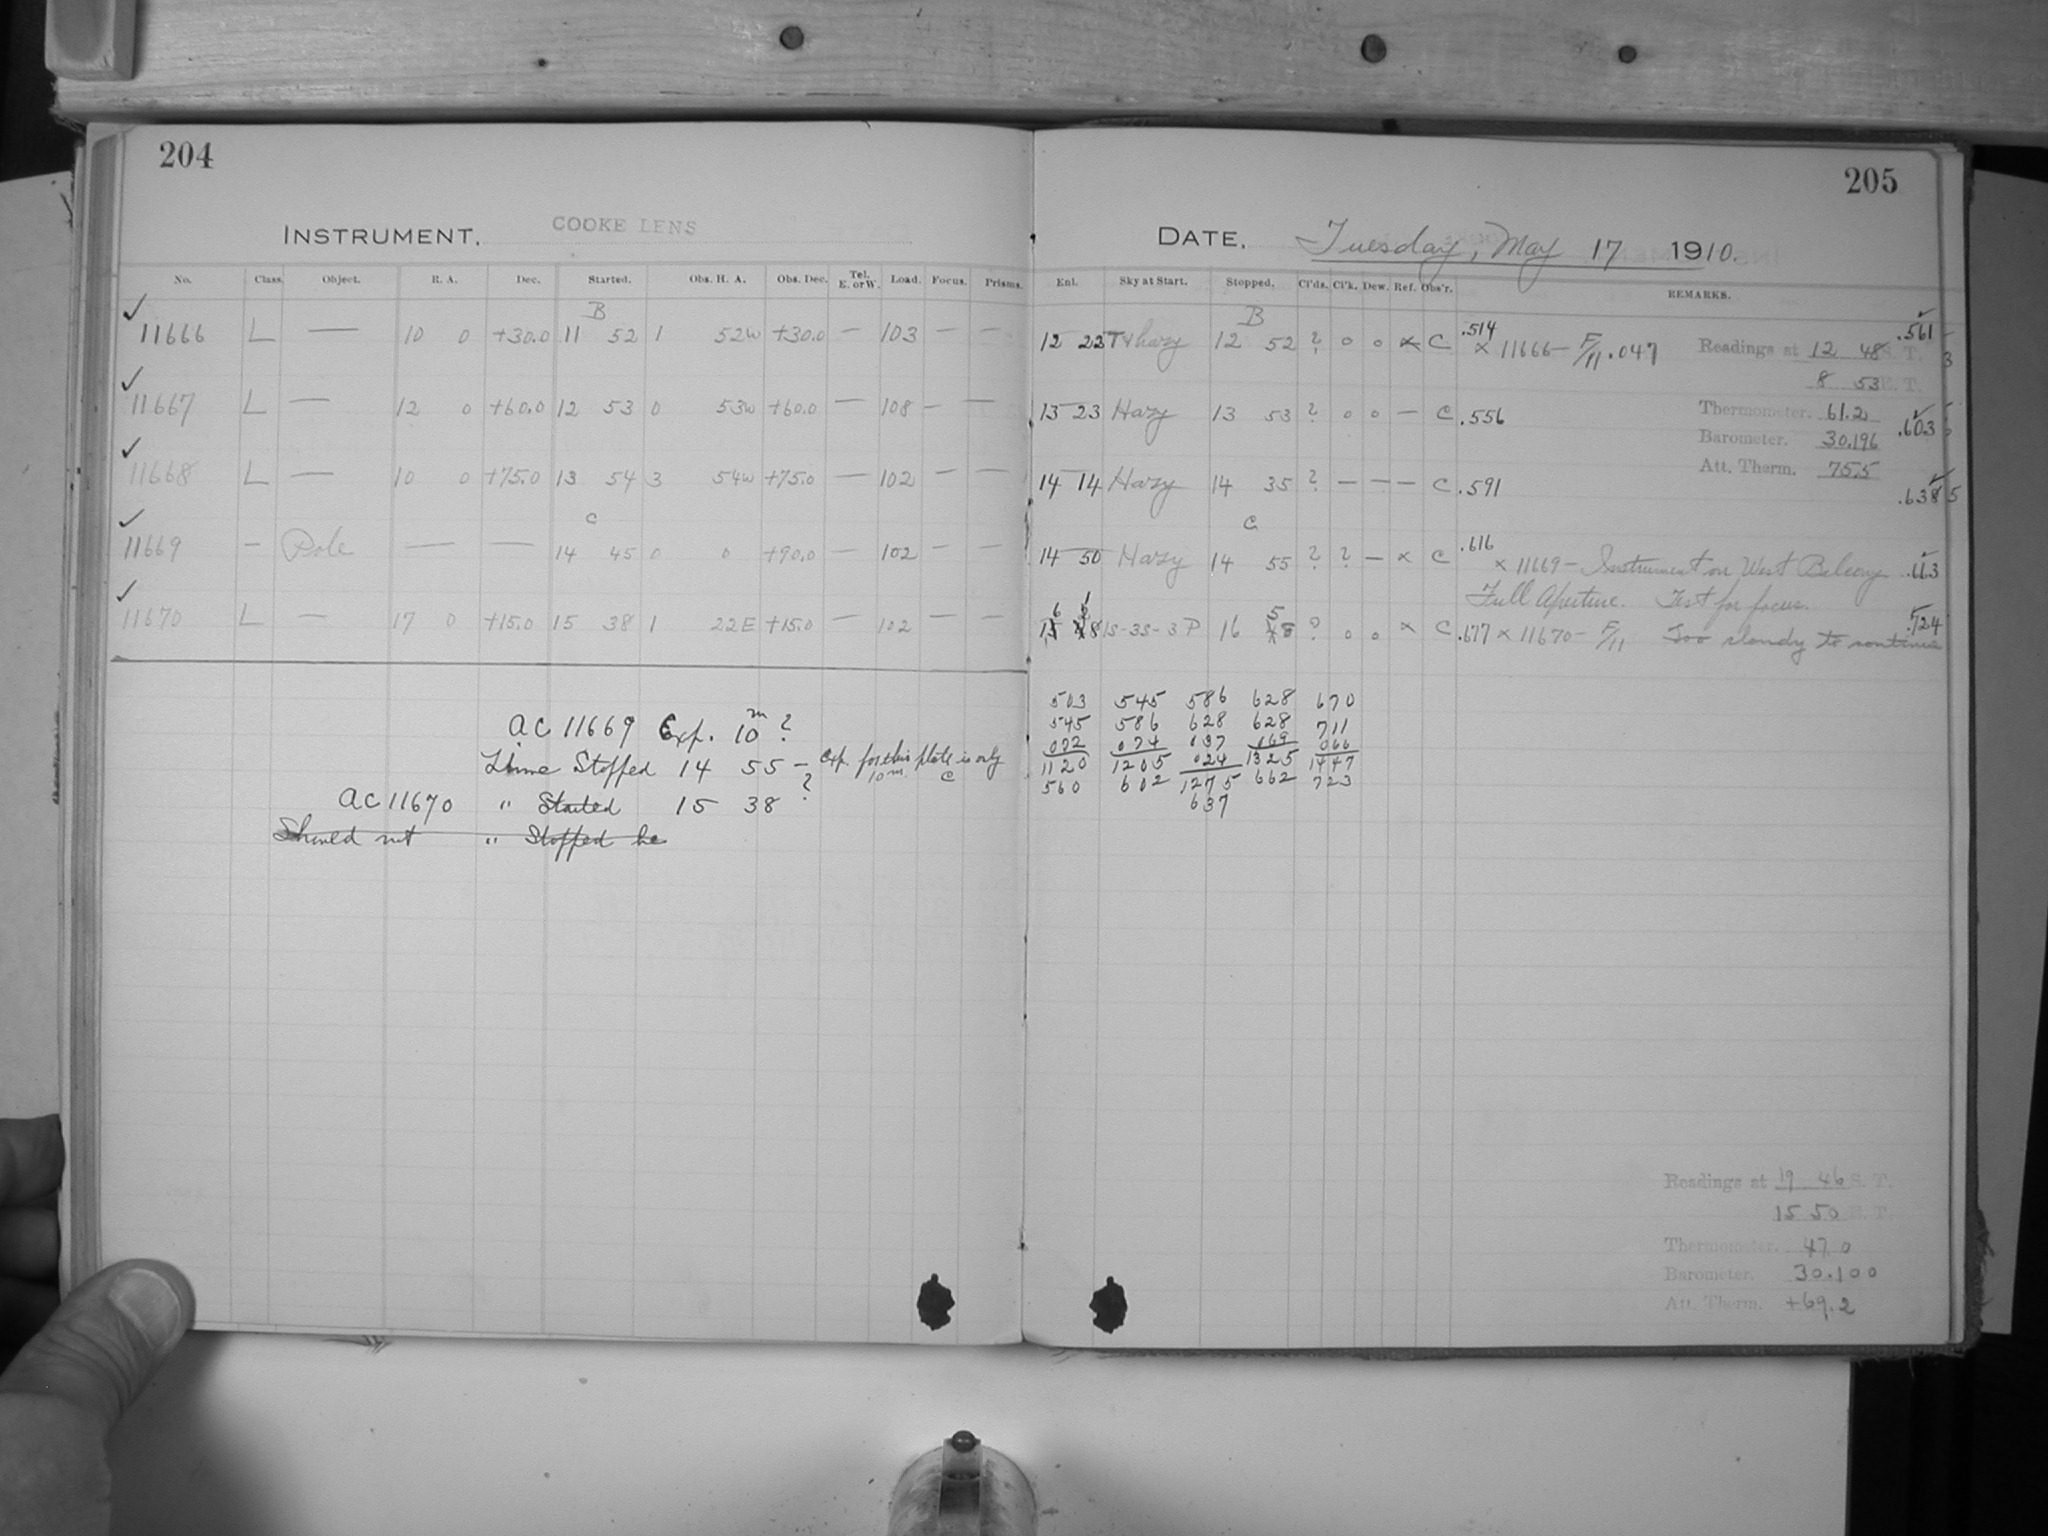 204
INSTRUMENT. COOKE LENS
No. Class. Object. R. A. Dec. Started. Obs. H. A. Obs. Dec. Tel. E. or W. Load. Focus. Prisms.
B
✓ 11666 L — 10 0 +30.0 11 52 1 52w +30.0 — 103 — —
✓ 11667 L — 12 0 +60.0 12 53 0 53w +60.0 — 108 — —
✓ 11668 L — 10 0 +75.0 13 54 3 54w +75.0 — 102 — —
c
✓ 11669 — Pole — — 14 45 0 0 +90.0 — 102 — —
✓ 11670 L — 17 0 +15.0 15 38 1 22E +15.0 — 102 — —
AC 11669 Exp. 10m ?
Time Stopped 14 55 — Exp. for this plate is only
10m. C
AC 11670 " Started 15 38 ?
Should not " Stopped be
205
DATE. Tuesday, May 17 1910.
Enl. Sky at Start. Stopped. Cl'ds. Cl'k. Dew. Ref. Obs'r. REMARKS.
B
12 22 hazy 12 52 ? 0 0 × C .514 × 11666 — F/11 .047 .561
Readings at 12 48 S. T.
8 53 E. T.
13 23 Hazy 13 53 ? 0 0 — C .556 .603
Thermometer. 61.2
Barometer. 30.196
Att. Therm. 75.5
14 14 Hazy 14 35 ? — — — C .591 .638 5
C
14 50 Hazy 14 55 ? ? — × C .616 × 11669 — Instrument on West Balcony .663
Full Aperture. Test for focus.
1S-3S-3P 16 5 ? 0 0 × C .677 × 11670 — F/11 Too cloudy to continue .724
503 545 586 628 670
545 586 628 628 711
072 074 037 069 066
1120 1205 024 1325 1447
560 602 1275 662 723
637
Readings at 19 46 S. T.
15 50 E. T.
Thermometer. 47.0
Barometer. 30.100
Att. Therm. +69.2